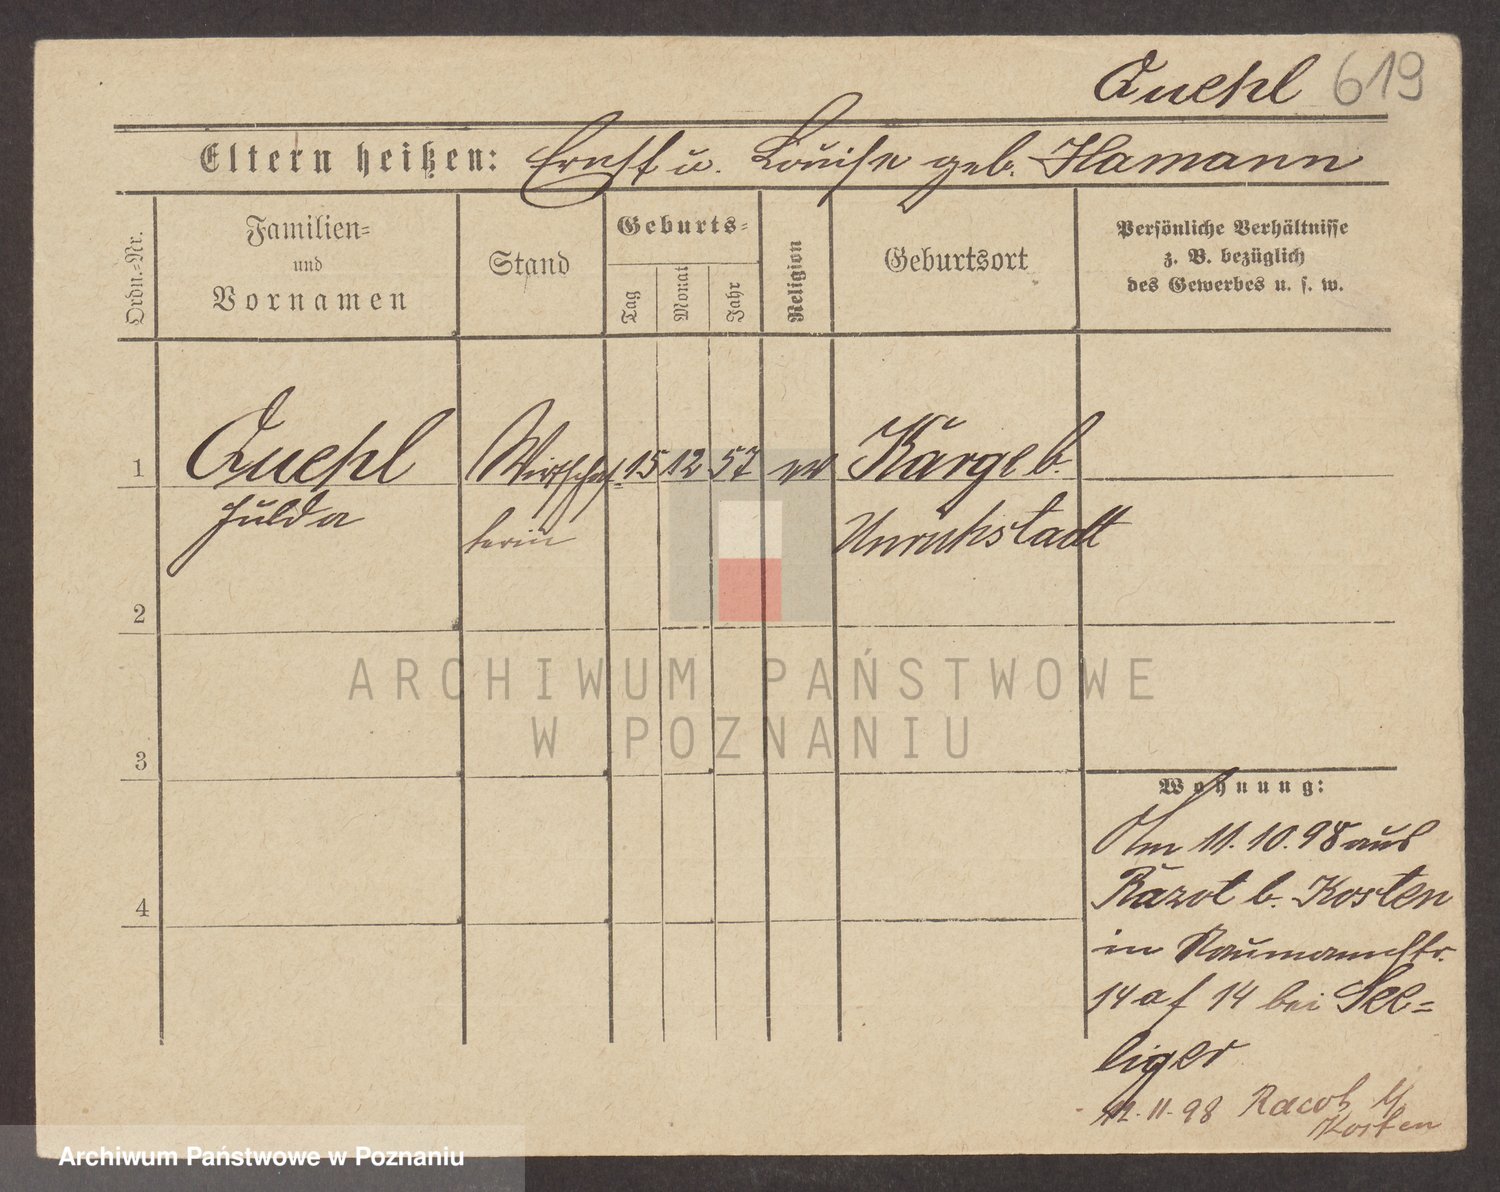 Quehl 619
Eltern heißen: Ernst u. Louise geb. Hamann
Ordn.-Nr.
Familien-
und
Vornamen
Stand
Geburts-
Tag
Monat
Jahr
Religion
Geburtsort
Persönliche Verhältnisse
z. B. bezüglich
des Gewerbes u. s. w.
1 Quehl Wirtschaf- 15 12 57 ev Karge b.
Hulda terin Unruhstadt
2
3
4
ARCHIWUM PAŃSTWOWE
W POZNANIU
Wohnung:
Am 11.10.98 aus
Razot b. Kosten
in Naumannstr.
14 af 14 bei See-
liger
12.11.98 Racot b/
Kosten
Archiwum Państwowe w Poznaniu